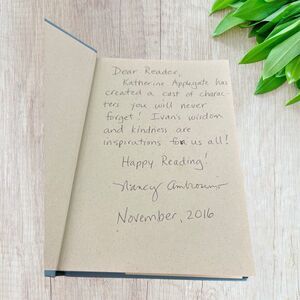 Dear Reader,
Katherine Applegate has
created a cast of charac-
ters you will never
forget! Ivan's wisdom
and kindness are
inspirations for us all!
Happy Reading!
Nancy
November, 2016